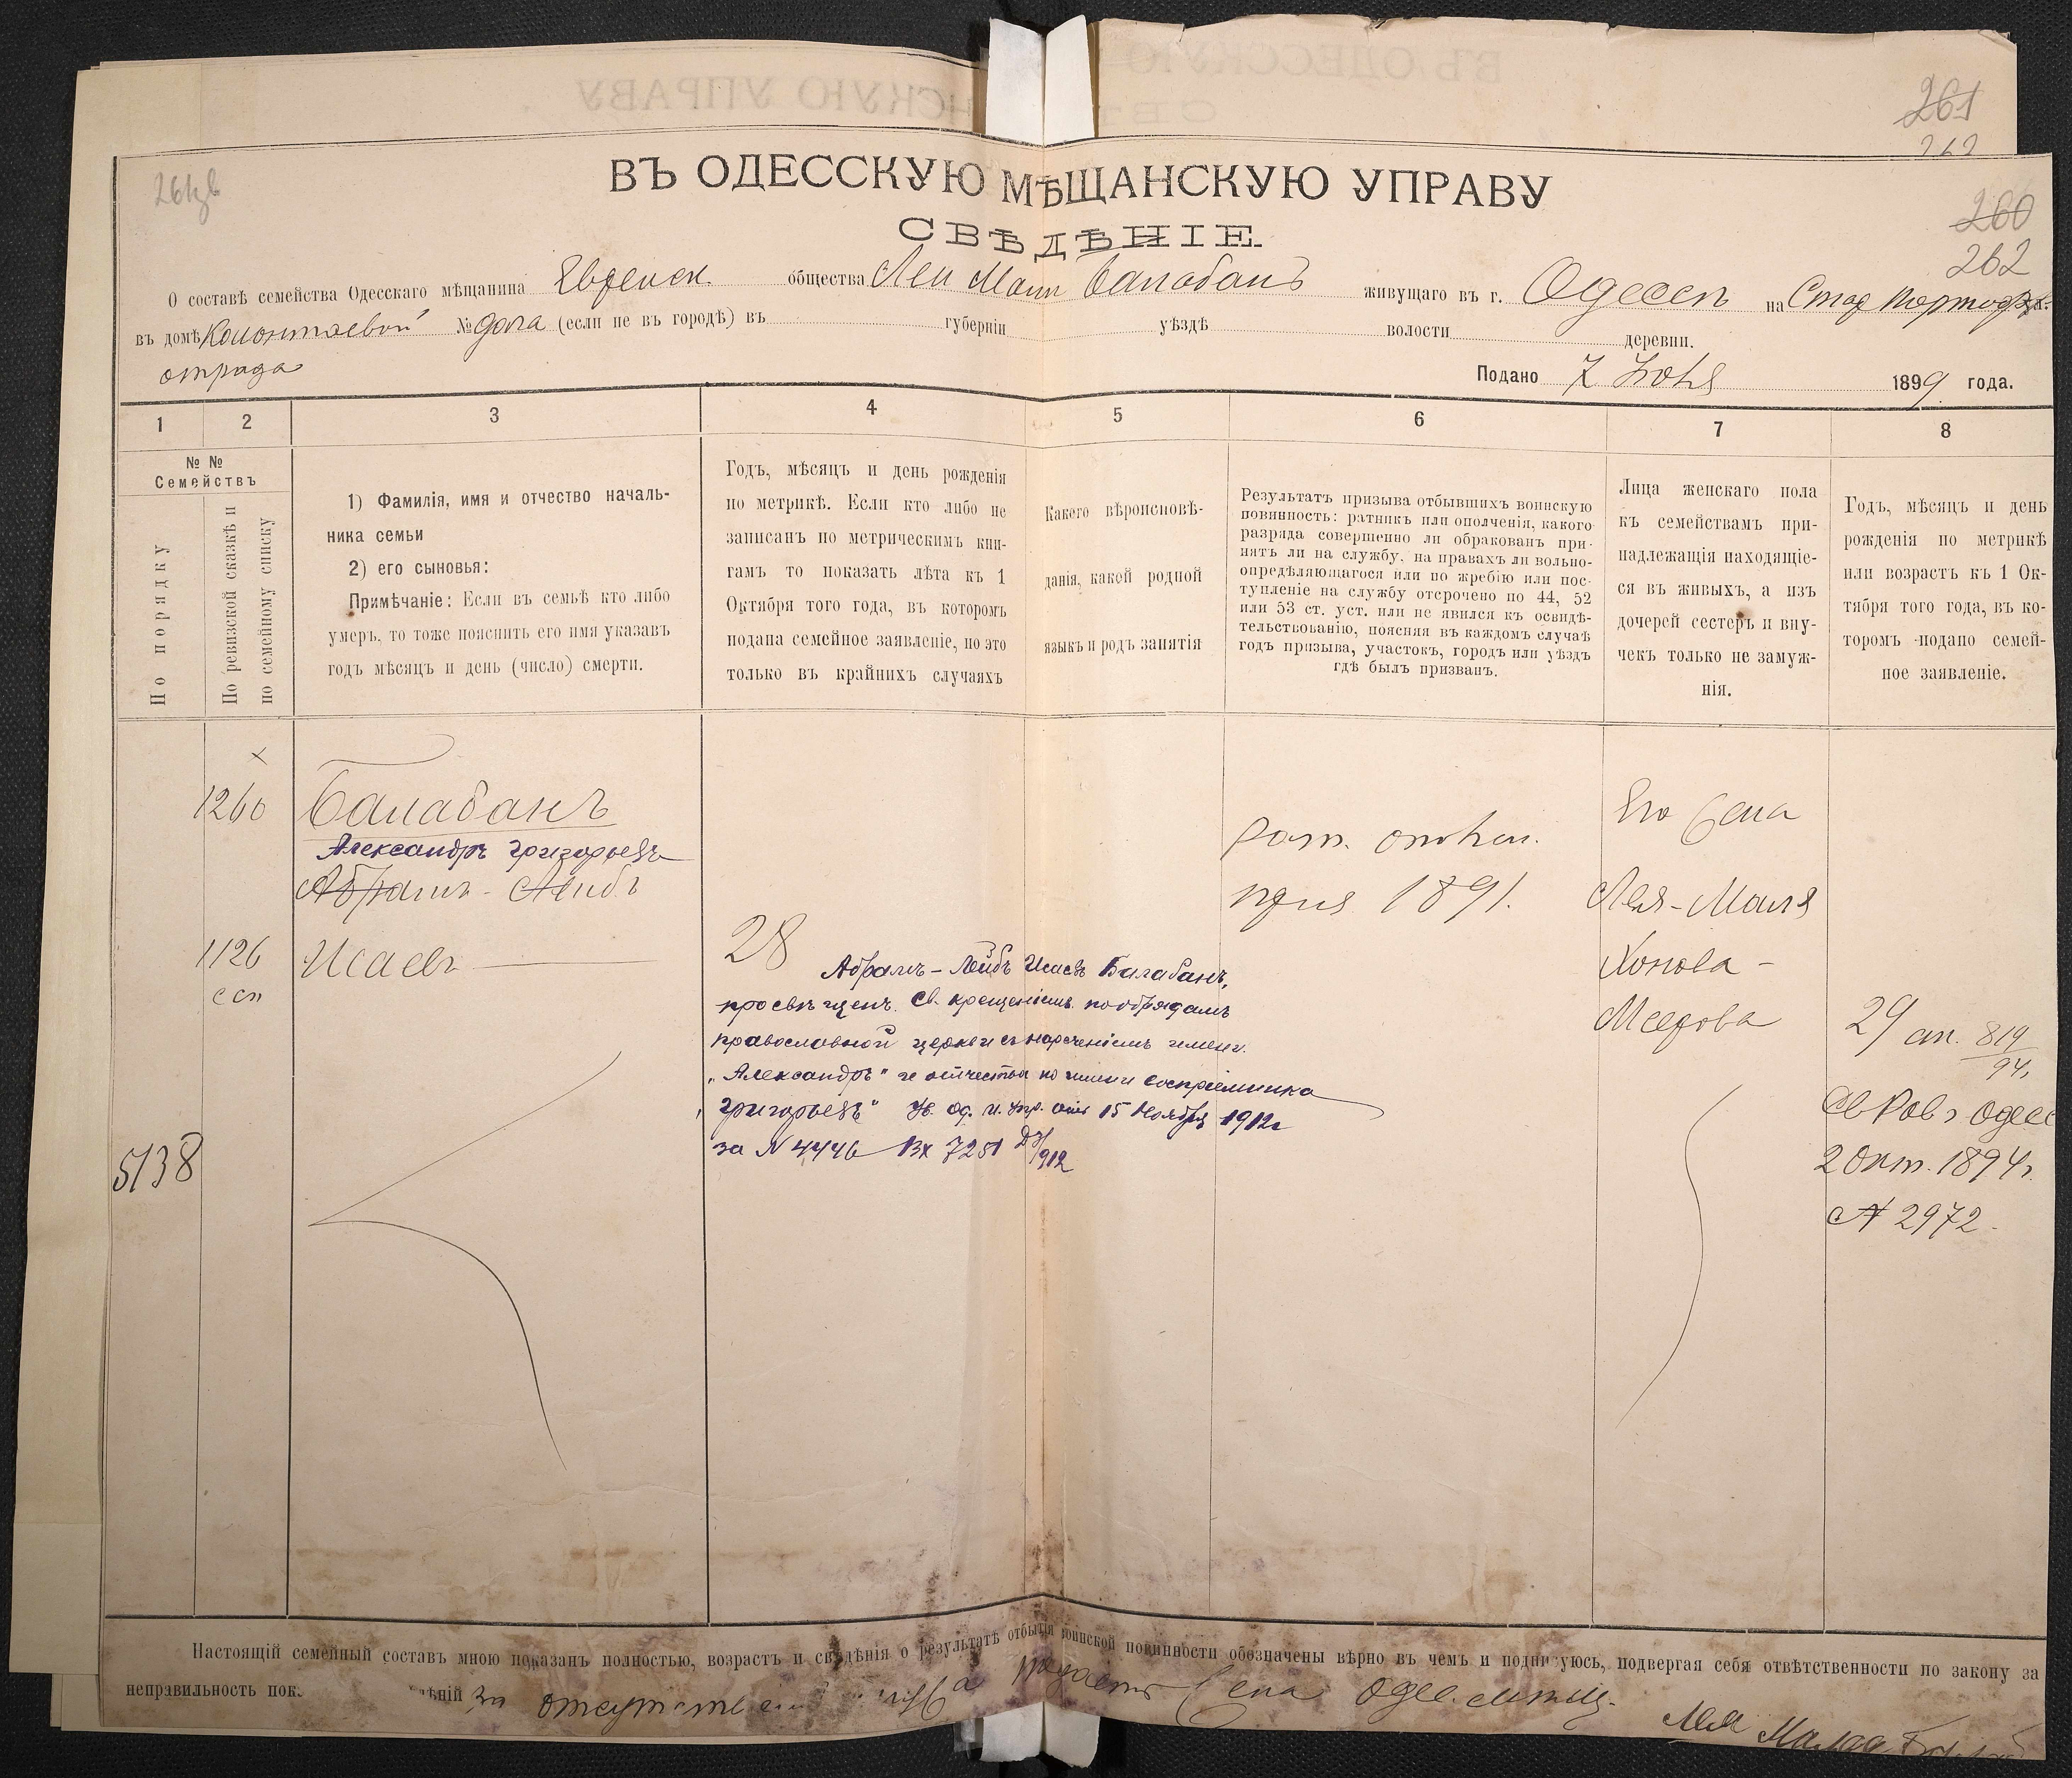 261
262
261зв
ВЪ ОДЕССКУЮ МѢЩАНСКУЮ УПРАВУ
260
СВѢДѢНІЕ.
262
О составѣ семейства Одесскаго мѣщанина Еврейск. общества Леи Мали Балабанъ живущаго въ г. Одессѣ на
въ домѣ № дача (если не въ городѣ) въ губерніи уѣздѣ волости деревни.
отрада
Подано 7 Іюня 1899 года.
1 2 3 4 5 6 7 8
№ №
Семействъ
По порядку
По ревизской сказкѣ и
по семейному списку
1) Фамилія, имя и отчество началь-
ника семьи
2) его сыновья:
Примѣчаніе: Если въ семьѣ кто либо
умеръ, то тоже пояснить его имя указавъ
годъ мѣсяцъ и день (число) смерти.
Годъ, мѣсяцъ и день рожденія
по метрикѣ. Если кто либо не
записанъ по метрическимъ кни-
гамъ то показать лѣта къ 1
Октября того года, въ которомъ
подана семейное заявленіе, но это
только въ крайнихъ случаяхъ
Какого вѣроисповѣ-
данія, какой родной
языкъ и родъ занятія
Результатъ призыва отбывшихъ воинскую
повинность: ратникъ или ополченія, какого
разряда совершенно ли обракованъ при-
нятъ ли на службу, на правахъ ли вольно-
опредѣляющагося или по жребію или пос-
тупленіе на службу отсрочено по 44, 52
или 53 ст. уст. или не явился къ освидѣ-
тельствованію, поясняя въ каждомъ случаѣ
годъ призыва, участокъ, городъ или уѣздъ
гдѣ былъ призванъ.
Лица женскаго пола
къ семействамъ при-
надлежащія находящіе-
ся въ живыхъ, а изъ
дочерей сестеръ и вну-
чекъ только не замуж-
нія.
Годъ, мѣсяцъ и день
рожденія по метрикѣ
или возрастъ къ 1 Ок-
тября того года, въ ко-
торомъ подано семей-
ное заявленіе.
1260
Балабанъ
Александръ Григорьевъ
Абрамъ-Лейбъ
1126
ссп
Исаевъ
5138
28
Абрамъ-Лейбъ Исаевъ Балабанъ,
просвѣщенъ Св. крещеніемъ по обрядамъ
православной церкви съ нареченіемъ имени
„Александръ" и отчества по имени воспріемника
„Григорьевъ" Ув. Од. Г. Упр. отъ 15 Ноября 1912 г
за № 4446 Вх 7281 Дз/912
Рат. ополчен.
пріз 1891.
Его жена
Лея-Маля
Хонова-
Меерова
29 ап. 819/94
Св Рав г Одес
2 Окт. 1894 г.
№ 2972
Настоящій семейный составъ мною показанъ полностью, возрастъ и свѣдѣнія о результатѣ отбытія воинской повинности обозначены вѣрно въ чемъ и подписуюсь, подвергая себя отвѣтственности по закону за
неправильность пок. дѣній за отсутствіемъ мужа подаетъ жена Одес. мѣщ.
Лея Маля